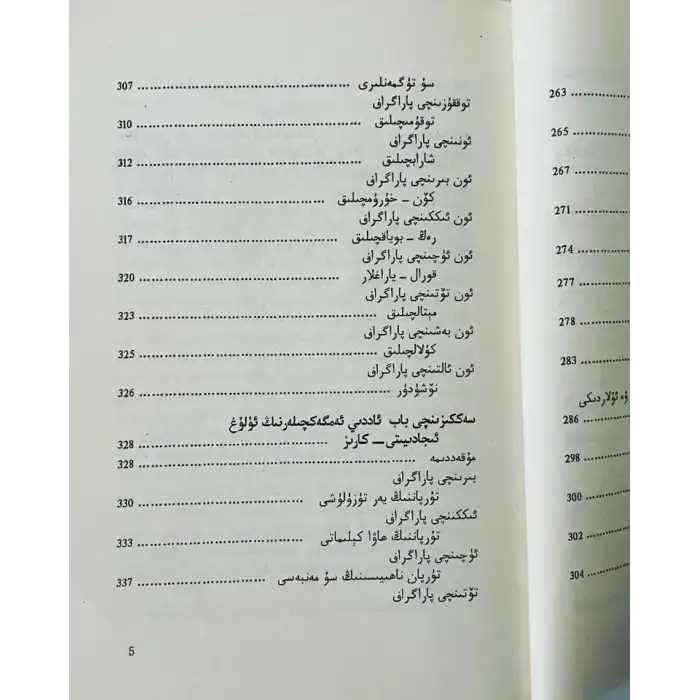 سۇ تۈگمەنلىرى ........ 307
توققۇزىنچى پاراگراف
توقۇمىچىلىق ........ 310
ئونىنچى پاراگراف
شارابچىلىق ........ 312
ئون بىرىنچى پاراگراف
كۆن ـ خۇرۇمچىلىق ........ 316
ئون ئىككىنچى پاراگراف
رەڭ ـ بوياقچىلىق ........ 317
ئون ئۈچىنچى پاراگراف
قورال ـ ياراغلار ........ 320
ئون تۆتىنچى پاراگراف
مېتالچىلىق ........ 323
ئون بەشىنچى پاراگراف
كۇلالچىلىق ........ 325
ئون ئالتىنچى پاراگراف
نۆشۈدۈر ........ 326
سەككىزىنچى باب ئاددىي ئەمگەكچىلەرنىڭ ئۇلۇغ
ئىجادىيىتى ـ كارىز ........ 328
مۇقەددىمە ........ 328
بىرىنچى پاراگراف
تۇرپاننىڭ يەر تۈزۈلۈشى ........ 330
ئىككىنچى پاراگراف
تۇرپاننىڭ ھاۋا كېلىماتى ........ 333
ئۈچىنچى پاراگراف
تۇرپان ناھىيىسىنىڭ سۇ مەنبەسى ........ 337
تۆتىنچى پاراگراف
5
263
265
267
271
274
277
278
283
ۋە ئۇلاردىكى
286
298
300
302
304